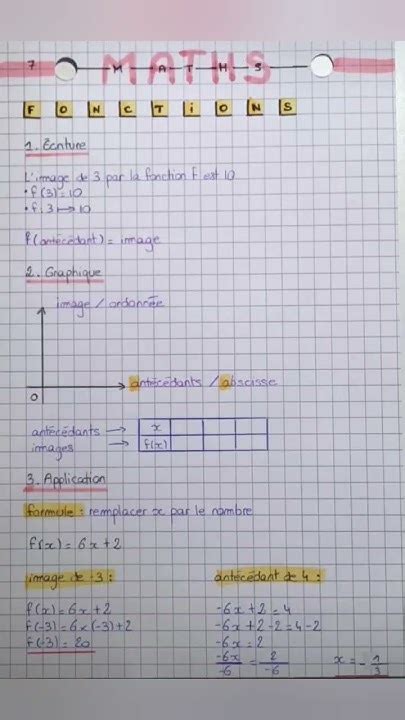 7 MATHS
M A T H S
FONCTIONS
1. Écriture
L'image de 3 par la fonction f est 10
• f(3) = 10
• f: 3 ⟼ 10
f(antécédant) = image
2. Graphique
image / ordonnée
0
antécédants / abscisse
antécédants → x
images → f(x)
3. Application
formule : remplacer x par le nombre
f(x) = 6x + 2
image de -3 :
f(x) = 6x + 2
f(-3) = 6 × (-3) + 2
f(-3) = 20
antécédant de 4 :
-6x + 2 = 4
-6x + 2 - 2 = 4 - 2
-6x = 2
-6x/-6 = 2/-6
x = -1/3